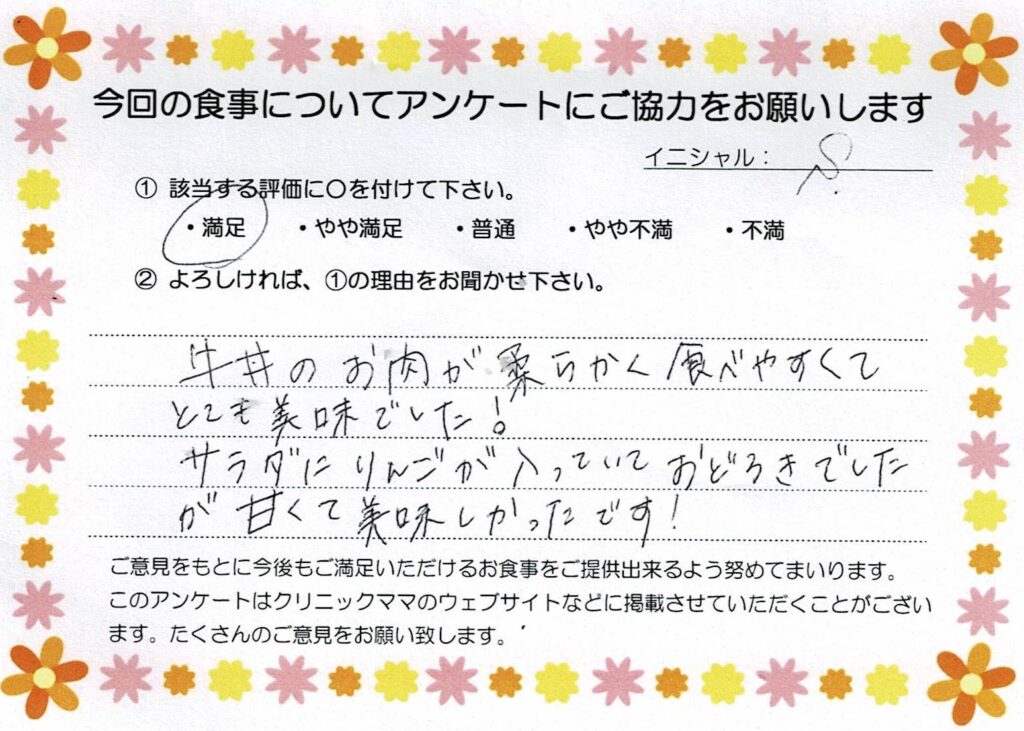 今回の食事についてアンケートにご協力をお願いします
イニシャル：　S.
① 該当する評価に〇を付けて下さい。
・満足　・やや満足　・普通　・やや不満　・不満
② よろしければ、①の理由をお聞かせ下さい。
牛丼のお肉が柔らかく食べやすくて
とても美味でした！
サラダにりんごが入っていておどろきでした
が甘くて美味しかったです！
ご意見をもとに今後もご満足いただけるお食事をご提供出来るよう努めてまいります。
このアンケートはクリニックママのウェブサイトなどに掲載させていただくことがござい
ます。たくさんのご意見をお願い致します。